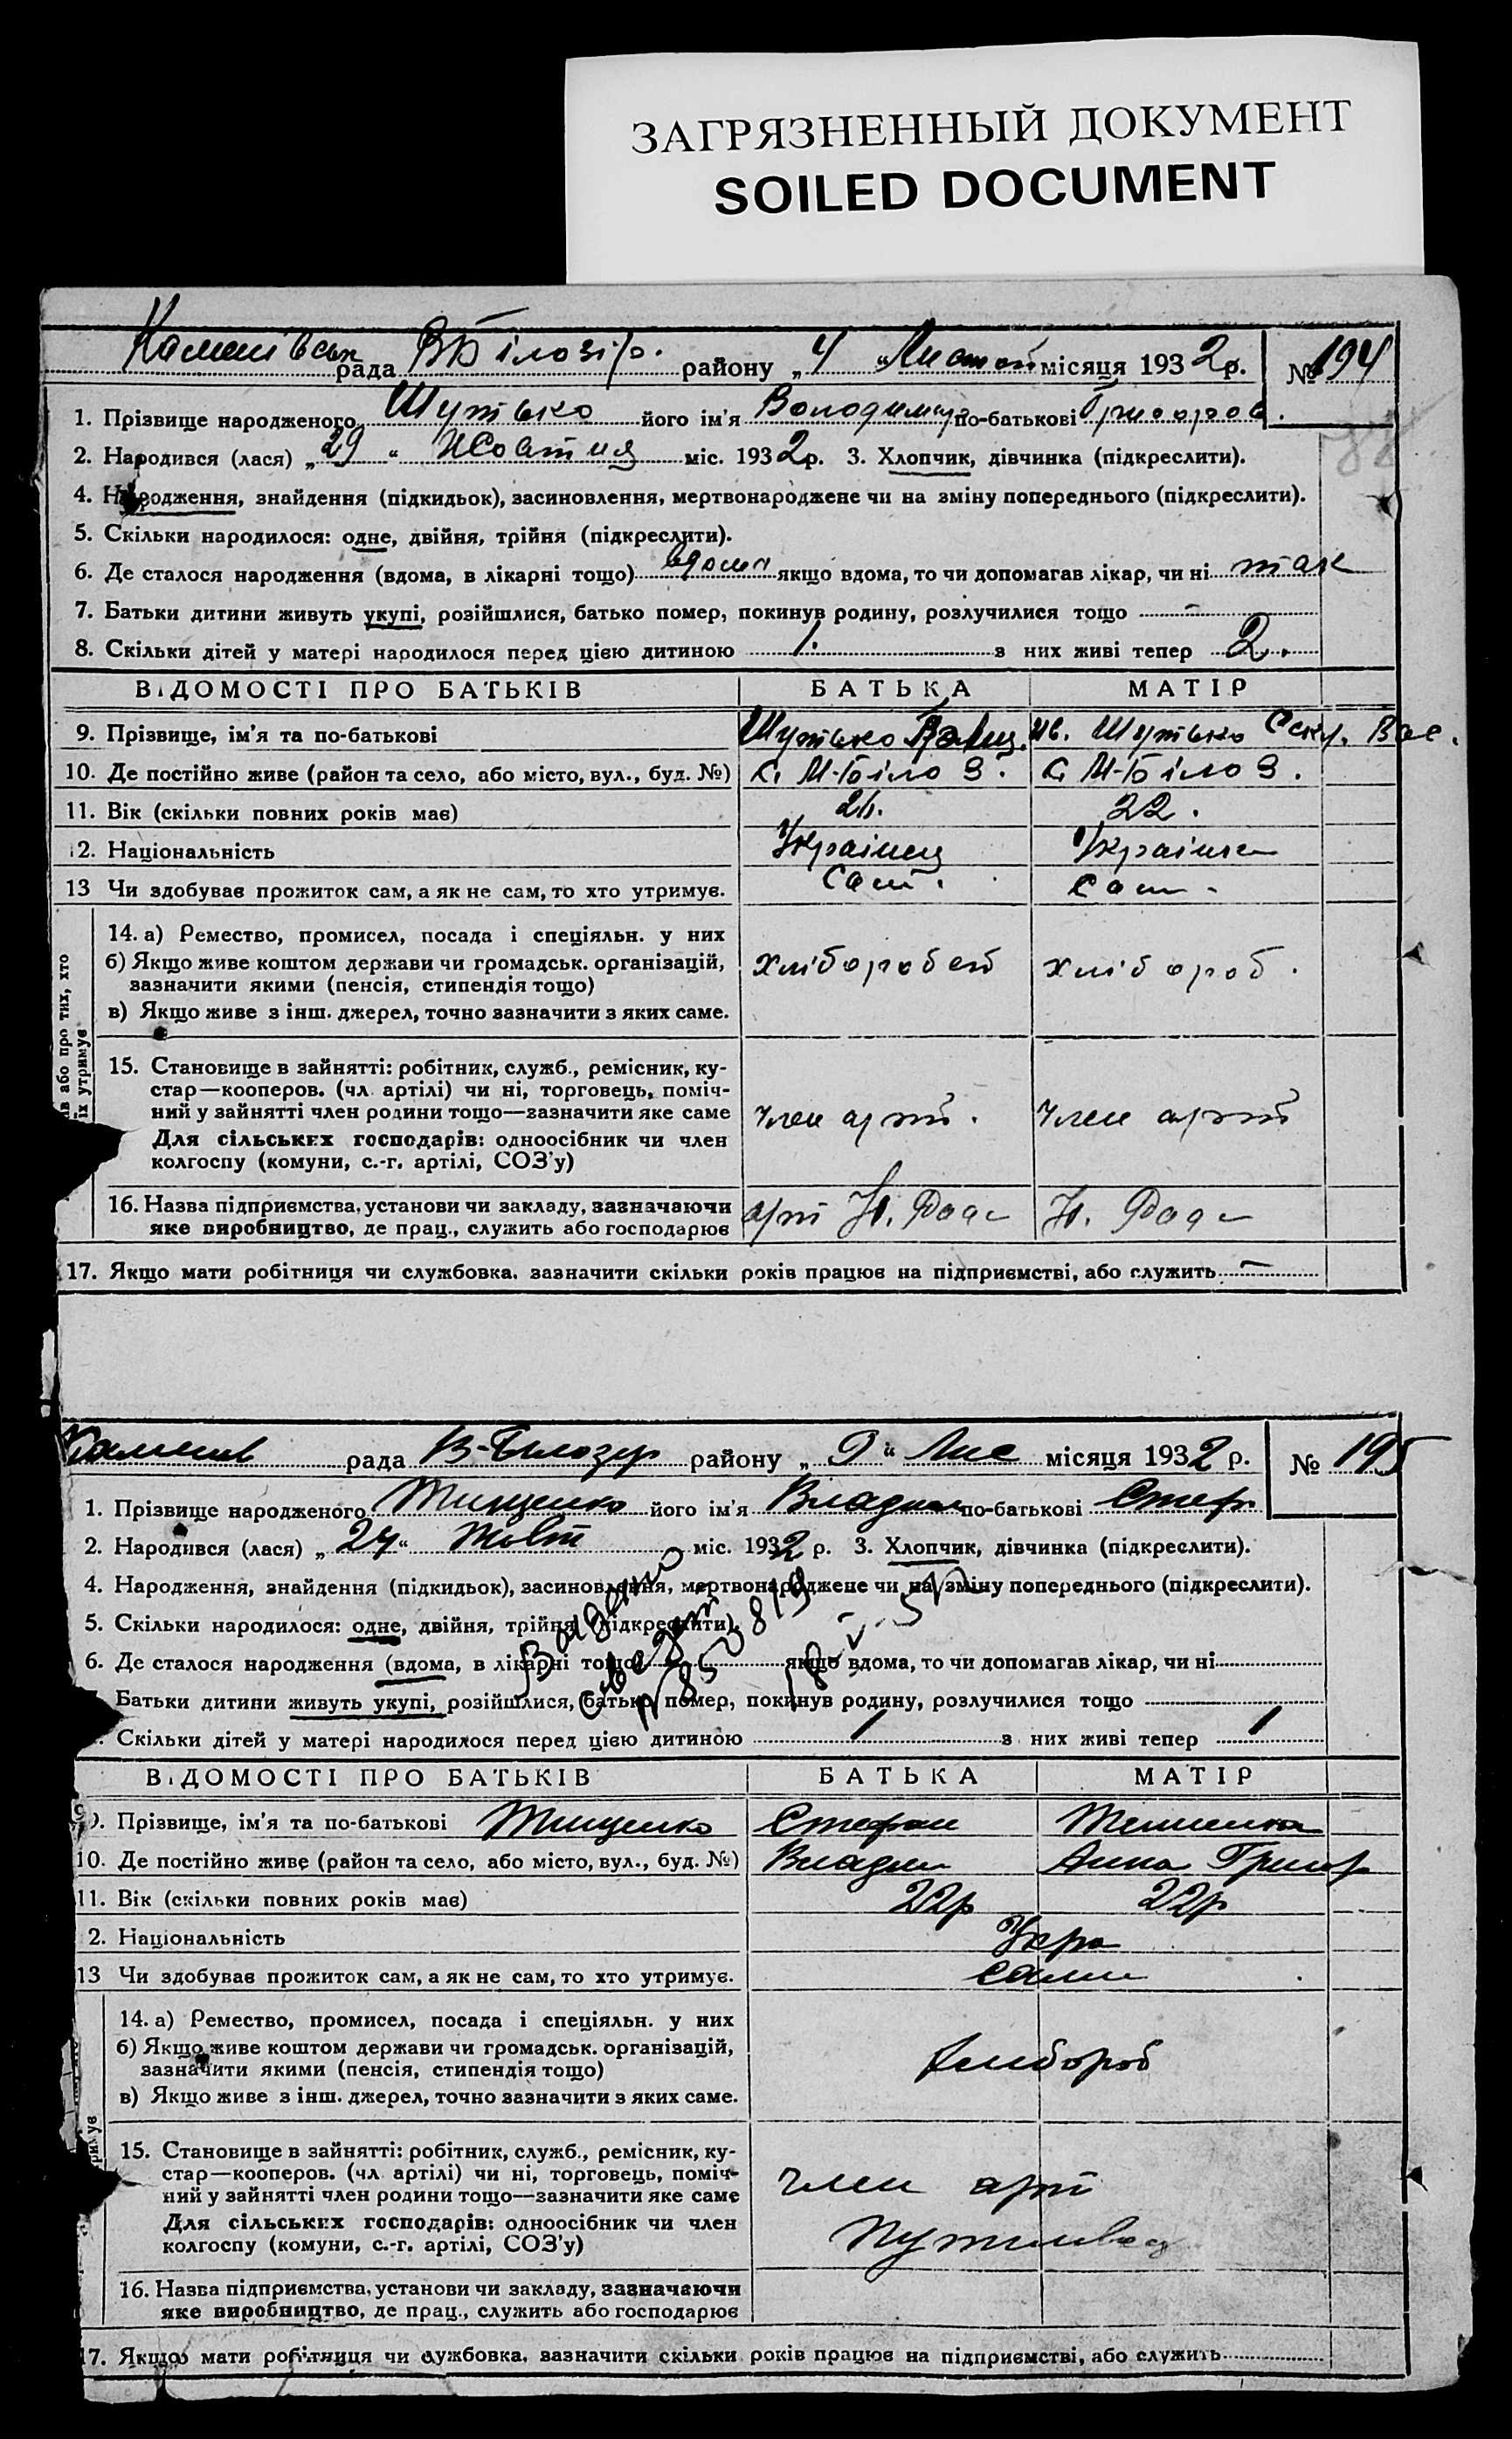 ЗАГРЯЗНЕННЫЙ ДОКУМЕНТ
SOILED DOCUMENT
рада ВБілозір. району „4“ місяця 1932р. № 194
1. Прізвище народженого Шутько його ім'я Володимир по-батькові Григоров.
2. Народився (лася) „29“ Жовтня міс. 1932р. 3. Хлопчик, дівчинка (підкреслити).
4. Народження, знайдення (підкидьок), засиновлення, мертвонароджене чи на зміну попереднього (підкреслити).
5. Скільки народилося: одне, двійня, трійня (підкреслити).
6. Де сталося народження (вдома, в лікарні тощо) вдома якщо вдома, то чи допомагав лікар, чи ні так
7. Батьки дитини живуть укупі, розійшлися, батько помер, покинув родину, розлучилися тощо –
8. Скільки дітей у матері народилося перед цією дитиною 1. з них живі тепер 2.
ВІДОМОСТІ ПРО БАТЬКІВ БАТЬКА МАТІР
9. Прізвище, ім'я та по-батькові Шутько Ів. Шутько Вас.
10. Де постійно живе (район та село, або місто, вул., буд. №) с. М-Біло З. с. М-Біло З.
11. Вік (скільки повних років має) 22.
12. Національність Українец Українка
13 Чи здобуває прожиток сам, а як не сам, то хто утримує. сам. сам.
14. а) Ремество, промисел, посада і спеціяльн. у них
б) Якщо живе коштом держави чи громадськ. організацій,
зазначити якими (пенсія, стипендія тощо)
хлібороб.
в) Якщо живе з інш. джерел, точно зазначити з яких саме.
ів або про тих, хто
їх утримує
15. Становище в зайнятті: робітник, служб., ремісник, ку-
стар—кооперов. (чл. артілі) чи ні, торговець, поміч-
ний у зайнятті член родини тощо—зазначити яке саме
член арт. член арт
Для сільських господарів: одноосібник чи член
колгоспу (комуни, с.-г. артілі, СОЗ'у)
16. Назва підприємства, установи чи закладу, зазначаючи
яке виробництво, де прац., служить або господарює
арт
17. Якщо мати робітниця чи службовка, зазначити скільки років працює на підприємстві, або служить –
рада В-Білозір району „9“ Лис місяця 1932 р. № 195
1. Прізвище народженого Тищенко його ім'я Владим по-батькові Стеф
2. Народився (лася) „24“ Жовт міс. 1932 р. 3. Хлопчик, дівчинка (підкреслити).
4. Народження, знайдення (підкидьок), засиновлення, мертвонароджене чи на зміну попереднього (підкреслити).
5. Скільки народилося: одне, двійня, трійня (підкреслити).
6. Де сталося народження (вдома, в лікарні тощо) якщо вдома, то чи допомагав лікар, чи ні
Батьки дитини живуть укупі, розійшлися, батько помер, покинув родину, розлучилися тощо
Скільки дітей у матері народилося перед цією дитиною 1 з них живі тепер 1
ВІДОМОСТІ ПРО БАТЬКІВ БАТЬКА МАТІР
9. Прізвище, ім'я та по-батькові Тищенко Стефан
10. Де постійно живе (район та село, або місто, вул., буд. №) Владим Анна Григор
11. Вік (скільки повних років має) 22р 22р
2. Національність Укра
13 Чи здобуває прожиток сам, а як не сам, то хто утримує. сами
14. а) Ремество, промисел, посада і спеціяльн. у них
б) Якщо живе коштом держави чи громадськ. організацій,
зазначити якими (пенсія, стипендія тощо)
хлібороб
в) Якщо живе з інш. джерел, точно зазначити з яких саме.
15. Становище в зайнятті: робітник, служб., ремісник, ку-
стар—кооперов. (чл. артілі) чи ні, торговець, поміч-
ний у зайнятті член родини тощо—зазначити яке саме
член арт
Для сільських господарів: одноосібник чи член
колгоспу (комуни, с.-г. артілі, СОЗ'у)
16. Назва підприємства, установи чи закладу, зазначаючи
яке виробництво, де прац., служить або господарює
17. Якщо мати робітниця чи службовка, зазначити скільки років працює на підприємстві, або служить